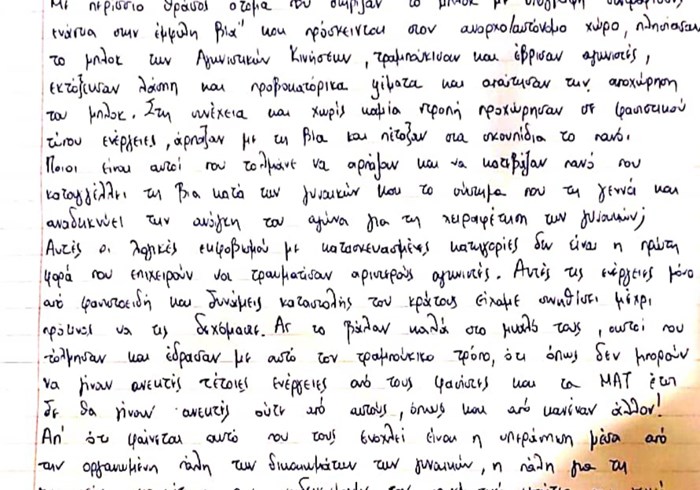 Με περίσσιο θράσος άτομα που στήριξαν το μπλοκ με
ενάντια στην έμφυλη βία" και πρόσκεινται στον αναρχο/αυτόνομο χώρο, πλησίασαν
το μπλοκ των Αγωνιστικών Κινήσεων, τραμπούκισαν και έβρισαν αγωνιστές,
εκτόξευσαν λάσπη και προβοκατόρικα ψέματα και απαίτησαν την αποχώρηση
του μπλοκ. Στη συνέχεια και χωρίς καμία ντροπή προχώρησαν σε φασιστικού
τύπου ενέργειες, άρπαξαν με τη βία και πέταξαν στα σκουπίδια το πανό.
Ποιοι είναι αυτοί που τολμάνε να αρπάξουν και να κατεβάζουν πανό που
καταγγέλλει τη βία κατά των γυναικών και το σύστημα που τη γεννά και
αναδεικνύει την ανάγκη του αγώνα για τη χειραφέτηση των γυναικών;
Αυτές οι λογικές εκφοβισμού με κατασκευασμένες κατηγορίες δεν είναι η πρώτη
φορά που επιχειρούν να τραυματίσουν αριστερούς αγωνιστές. Αυτές τις ενέργειες μόνο
από φασιστοειδή και δυνάμεις καταστολής του κράτους είχαμε συνηθίσει μέχρι
πρότινος να τις δεχόμαστε. Ας το βάλουν καλά στο μυαλό τους, αυτοί που
τόλμησαν και έδρασαν με αυτό τον τραμπούκικο τρόπο, ότι όπως δεν μπορούν
να γίνουν ανεκτές τέτοιες ενέργειες από τους φασίστες και τα ΜΑΤ έτσι
δε θα γίνουν ανεκτές ούτε από αυτούς, όπως και από κανέναν άλλον!
Απ' ότι φαίνεται αυτό που τους ενοχλεί είναι η υπεράσπιση μέσα από
την οργανωμένη πάλη των δικαιωμάτων των γυναικών, η πάλη για τη